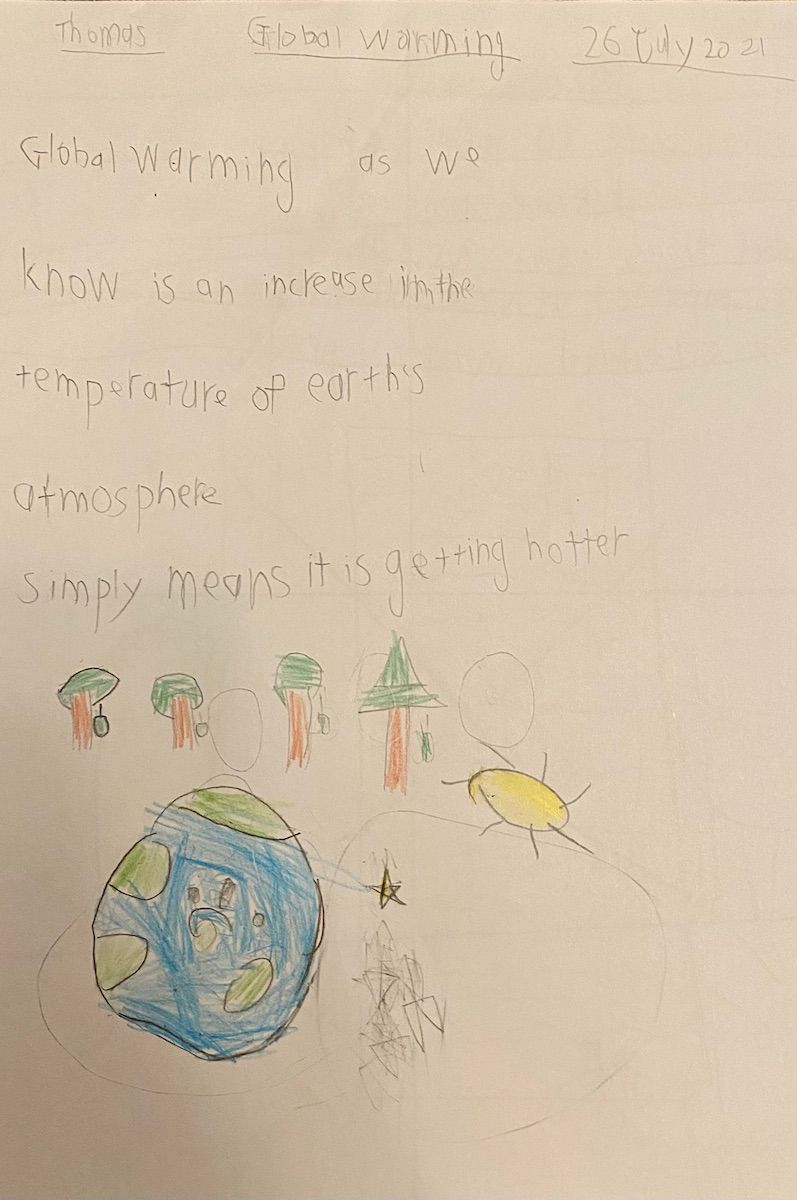 Thomas Global Warming 26 July 2021
Global Warming as we
know is an increase in the
temperature of earth's
atmosphere
simply means it is getting hotter